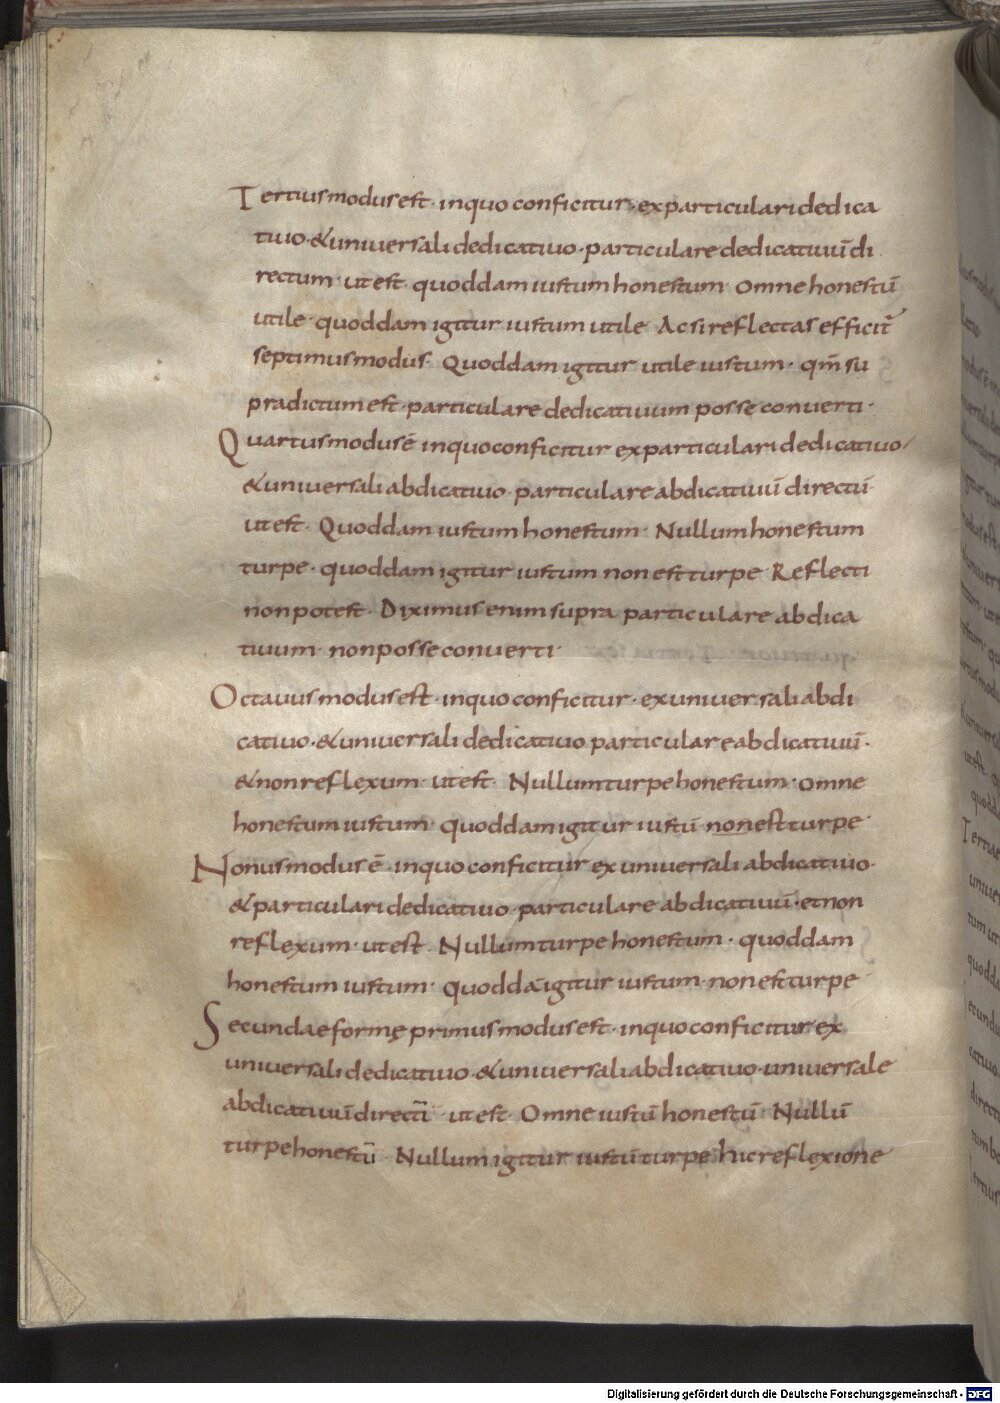 Tertius modus est · in quo conficitur · ex particulari dedica
tiuo · & uniuersali dedicatiuo · particulare dedicatiuū di
rectum · ut est · quoddam iustum honestum · Omne honestū
utile · quoddam igitur iustum utile Ac si reflectas efficit̄
septimus modus · Quoddam igitur utile iustum · qm̄ su
pradictum est · particulare dedicatiuum posse conuerti ·
Quartus modus ē in quo conficitur ex particulari dedicatiuo
& uniuersali abdicatiuo · particulare abdicatiuū directū
ut est · Quoddam iustum honestum · Nullum honestum
turpe · quoddam igitur iustum non est turpe Reflecti
non potest · Diximus enim supra particulare abdica
tiuum · non posse conuerti ·
Octauus modus est · in quo conficitur · ex uniuersali abdi
catiuo · & uniuersali dedicatiuo particulare abdicatiuū ·
& non reflexum · ut est · Nullum turpe honestum · omne
honestum iustum · quoddam igitur iustū non est turpe
Nonus modus ē · in quo conficitur ex uniuersali abdicatiuo ·
& particulari dedicatiuo · particulare abdicatiuū · et non
reflexum · ut est · Nullum turpe honestum · quoddam
honestum iustum · quoddā igitur iustum · non est turpe
Secundae formę primus modus est · in quo conficitur ex
uniuersali dedicatiuo · & uniuersali abdicatiuo · uniuersale
abdicatiuū directū · ut est · Omne iustū honestū · Nullū
turpe honestū · Nullum igitur iustū turpe hic reflexione
Digitalisierung gefördert durch die Deutsche Forschungsgemeinschaft - DFG